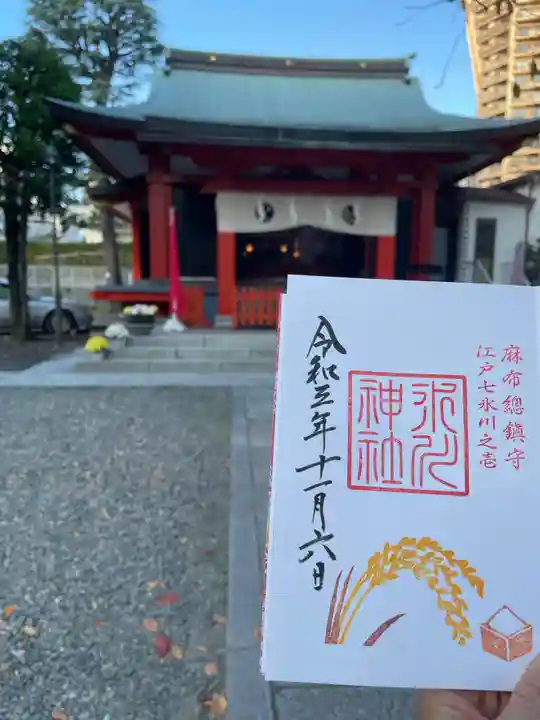 麻布總鎮守
江戸七氷川之壱
氷川
神社
令和五年十一月六日